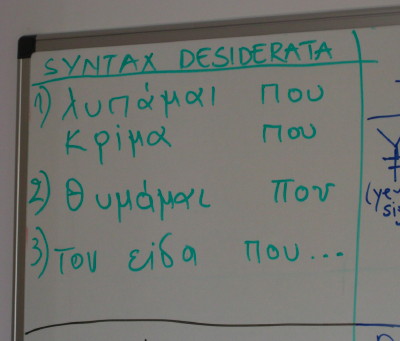 SYNTAX DESIDERATA
1) λυπάμαι που
κρίμα που
2) θυμάμαι που
3) Τον είδα που...